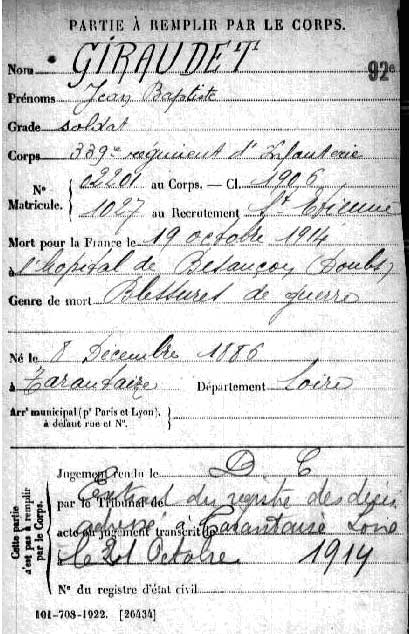 PARTIE À REMPLIR PAR LE CORPS.
Nom GIRAUDET 92e
Prénoms Jean Baptiste
Grade soldat
Corps 339e régiment d'Infanterie
N° Matricule. { 02201 au Corps. — Cl. 1906
1027 au Recrutement St Etienne
Mort pour la France le 19 octobre 1914
à l'hopital de Besançon (Doubs)
Genre de mort Blessures de guerre
Né le 8 Décembre 1886
à Tarantaize Département Loire
Arrt municipal (pr Paris et Lyon),
à défaut rue et N°.
Cette partie n'est pas à remplir par le Corps.
Jugement rendu le D C
par le Tribunal de Extrait du registre des décès
acte ou jugement transcrit le adressé à Tarantaise Loire
le 21 Octobre 1914
N° du registre d'état civil
101-708-1922. [26434]